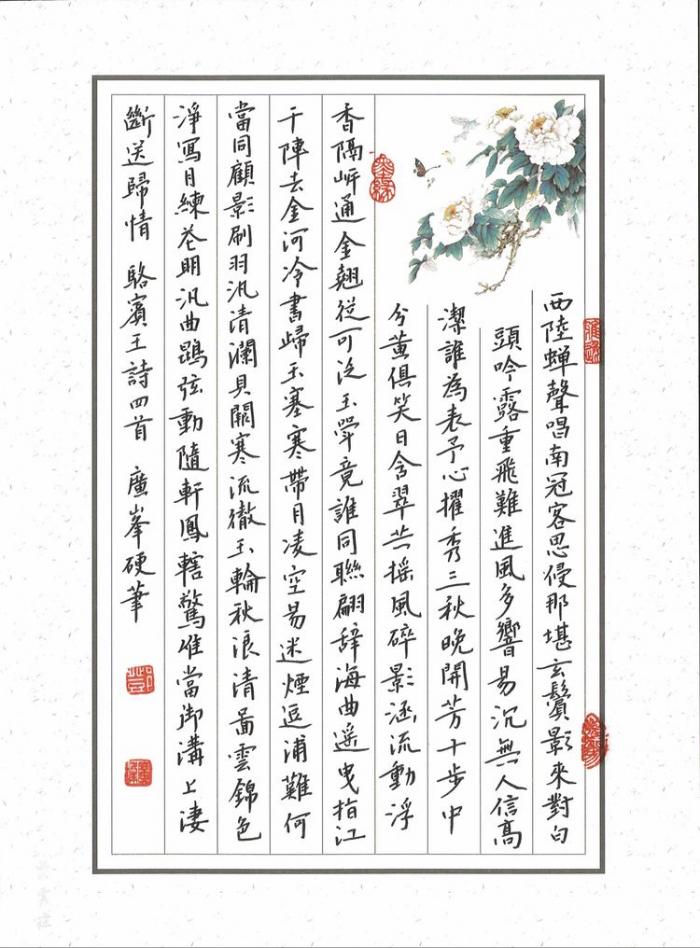 西陸蟬聲唱南冠客思侵那堪玄鬢影來對白
頭吟露重飛難進風多響易沉無人信高
潔誰為表予心擢秀三秋晚開芳十步中
分黄俱笑日含翠共摇風碎影涵流動浮
香隔岍通金翹從可泛玉斝竟誰同聯翩辞海曲遥曳指江
干陣去金河冷書歸玉塞寒帶月凌空易迷煙逗浦難何
當同顧影刷羽汎清瀾貝闕寒流徹玉輪秋浪清啚雲錦色
淨寫月練花明汎曲鵾弦動隨軒鳳轄驚唯當御溝上凄
斷送歸情 駱賓王詩四首 廣峯硬筆